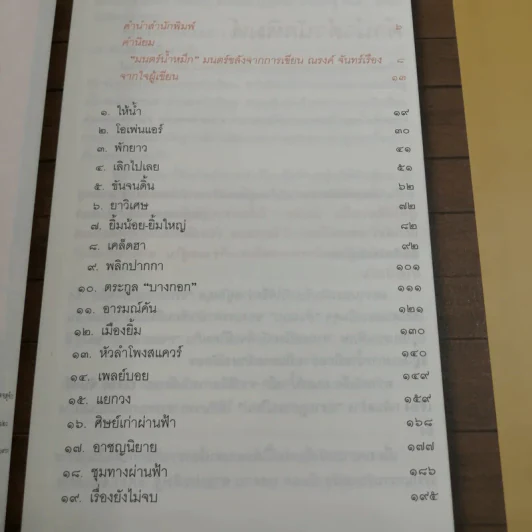 คำนำสำนักพิมพ์ ๕
คำนิยม
"มนตร์น้ำหมึก" มนตร์ขลังจากการเขียน ณรงค์ จันทร์เรือง ๘
จากใจผู้เขียน ๑๓
๑. ให้น้ำ ๑๙
๒. โอเพ่นแอร์ ๓๐
๓. พักยาว ๔๑
๔. เลิกไปเลย ๕๑
๕. ขันจนดิ้น ๖๒
๖. ยาวิเศษ ๗๒
๗. ยิ้มน้อย-ยิ้มใหญ่ ๘๒
๘. เคล็ดฮา ๙๒
๙. พลิกปากกา ๑๐๑
๑๐. ตระกูล "บางกอก" ๑๑๑
๑๑. อารมณ์คัน ๑๒๑
๑๒. เมืองยิ้ม ๑๓๐
๑๓. หัวลำโพงสแควร์ ๑๔๐
๑๔. เพลย์บอย ๑๔๙
๑๕. แยกวง ๑๕๙
๑๖. ศิษย์เก่าผ่านฟ้า ๑๖๘
๑๗. อาชญนิยาย ๑๗๗
๑๘. ชุมทางผ่านฟ้า ๑๘๖
๑๙. เรื่องยังไม่จบ ๑๙๕